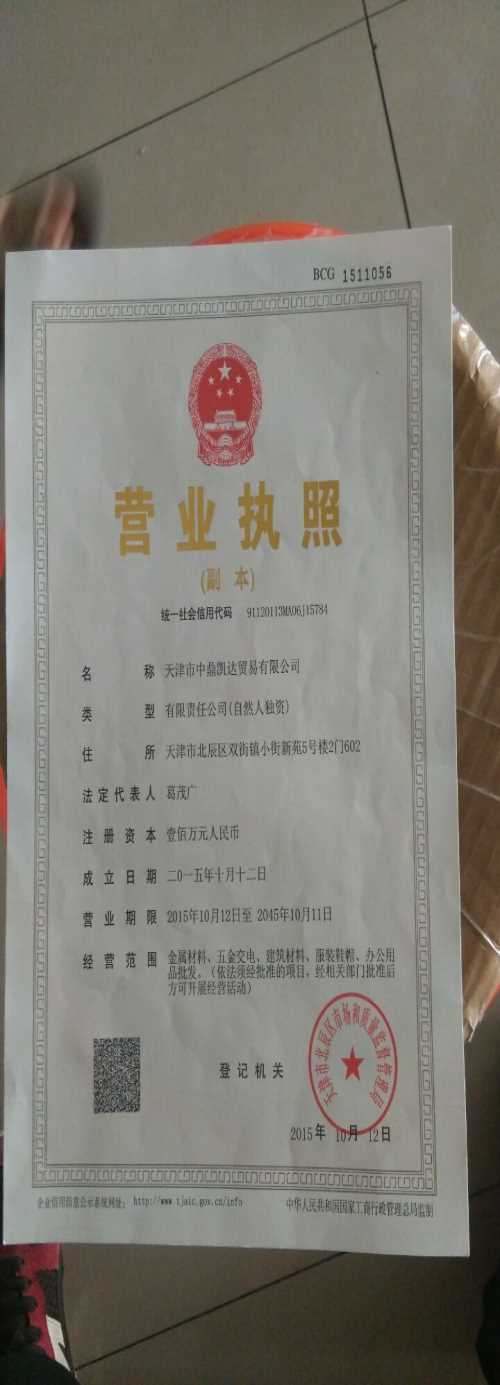 BCG 1511056
营业执照
(副 本)
统一社会信用代码 91120113MA06J15784
名称 天津市中鼎凯达贸易有限公司
类型 有限责任公司(自然人独资)
住所 天津市北辰区双街镇小街新苑5号楼2门602
法定代表人 葛茂广
注册资本 壹佰万元人民币
成立日期 二0一五年十月十二日
营业期限 2015年10月12日至 2045年10月11日
经营范围 金属材料、五金交电、建筑材料、服装鞋帽、办公用
品批发。（依法须经批准的项目，经相关部门批准后
方可开展经营活动）
登记机关
天津市北辰区市场和质量监督管理局
2015年 10月 12日
企业信用信息公示系统网址: http://www.tjaic.gov.cn/info
中华人民共和国国家工商行政管理总局监制